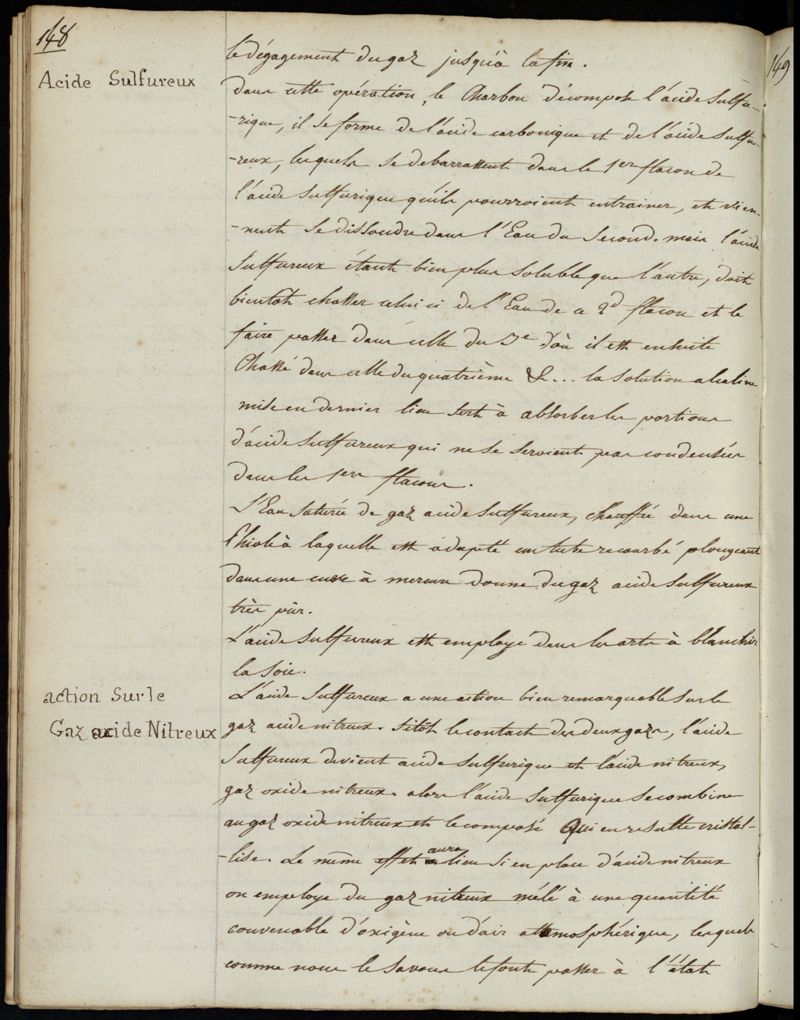 148
149
Acide Sulfureux
le dégagement du gaz jusqu'à la fin.
Dans cette opération, le Charbon décompose l'acide sulfu-
-rique, il se forme de l'acide carbonique et de l'acide sulfu-
-reux, lesquels se debarrassent dans le 1er flacon de
l'acide sulfurique qu'ils pourroient entrainer, et vien-
-nent se dissoudre dans l'Eau du second. mais l'acide
sulfureux étant bien plus soluble que l'autre, doit
bientot chasser celui ci de l'Eau de ce 2d flacon et le
faire passer dans celle du 3e d'où il est ensuite
Chassé dans celle du quatrième &... la solution alcaline
mise en dernier lieu sert à absorber les portions
d'acide sulfureux qui ne se seroient pas condensées
dans les 1ers flacons.
L'Eau saturée de gaz acide sulfureux, chauffée dans une
fhiole à laquelle est adapté un tube recourbé plongeant
dans une cuve à mercure donne du gaz acide sulfureux
très pur.
L'acide sulfureux est employé dans les arts à blanchir
la soie.
action Sur le
Gaz acide Nitreux
L'acide sulfureux a une action bien remarquable sur le
gaz acide nitreux. sitot le contact des deux gazs, l'acide
sulfureux devient acide sulfurique et l'acide nitreux,
gaz oxide nitreux. alors l'acide sulfurique se combine
au gaz oxide nitreux et le composé qui en resulte cristal-
-lise. Le même effet aura lieu si en place d'acide nitreux
on employe du gaz nitreux mêlé à une quantité
convenable d'oxigène ou d'air atmosphérique, lesquels
comme nous le savons le font passer à l'état